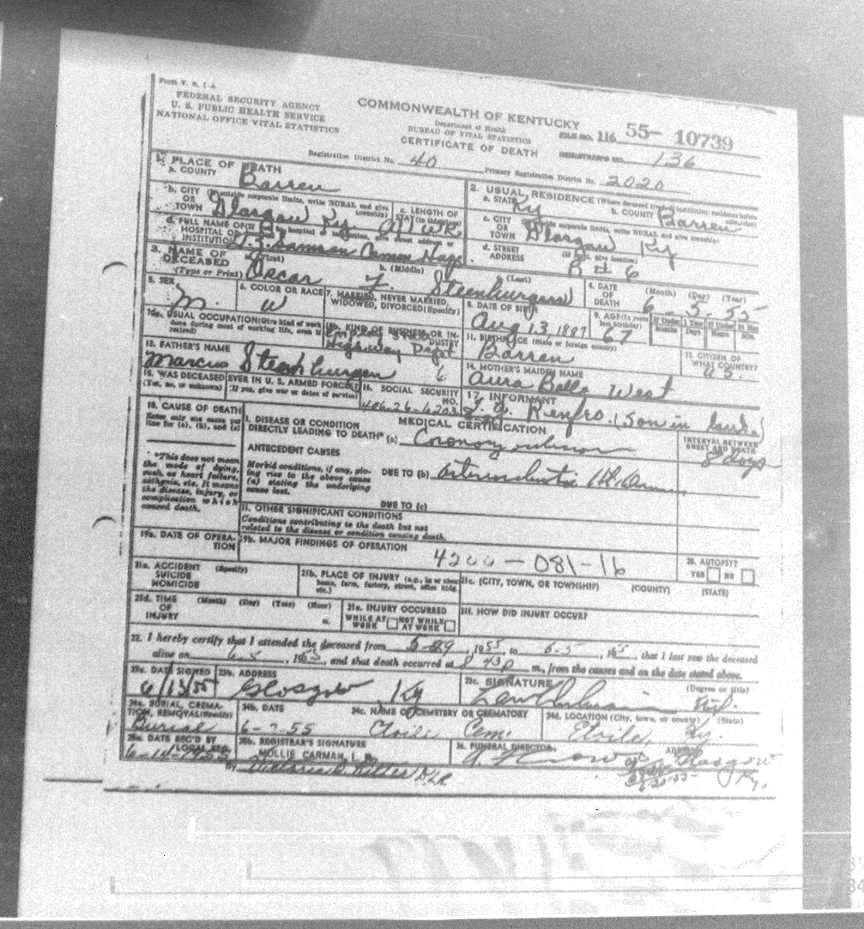 Form V. S. 1-A
FEDERAL SECURITY AGENCY
U. S. PUBLIC HEALTH SERVICE
NATIONAL OFFICE VITAL STATISTICS
COMMONWEALTH OF KENTUCKY
Department of Health
BUREAU OF VITAL STATISTICS
CERTIFICATE OF DEATH
FILE NO. 116 55- 10739
REGISTRAR'S NO. 136
Registration District No. 40 Primary Registration District No. 2020
1. PLACE OF DEATH
a. COUNTY Barren
2. USUAL RESIDENCE (Where deceased lived. If institution: residence before
a. STATE Ky b. COUNTY Barren
b. CITY (If outside corporate limits, write RURAL and give
OR
TOWN Glasgow Ky
c. LENGTH OF
c. CITY (If outside corporate limits, write RURAL and give township)
OR
TOWN Glasgow Ky
d. FULL NAME OF
HOSPITAL OR
INSTITUTION T. J. Samson Comm Hosp
d. STREET
ADDRESS R # 6
3. NAME OF
DECEASED
(Type or Print)
a. (First) b. (Middle) c. (Last)
Oscar
4. DATE
OF
DEATH
(Month) (Day) (Year)
6-5-55
5. SEX
M.
6. COLOR OR RACE
W
7. MARRIED, NEVER MARRIED,
WIDOWED, DIVORCED (Specify)
8. DATE OF BIRTH
Aug 13, 1887
9. AGE (In years
last birthday)
67
If Under 1 Year
Months Days
If Under 24 Hrs
Hours Min.
10a. USUAL OCCUPATION (Give kind of work
done during most of working life, even if
retired)
10b. KIND OF BUSINESS OR IN-
DUSTRY
Highway Dept
11. BIRTHPLACE (State or foreign country)
Barren
12. CITIZEN OF
WHAT COUNTRY?
U.S.
13. FATHER'S NAME
Marcus
14. MOTHER'S MAIDEN NAME
Aura Bell West
15. WAS DECEASED EVER IN U. S. ARMED FORCES?
(Yes, no, or unknown) (If yes, give war or dates of service)
16. SOCIAL SECURITY
NO.
17. INFORMANT
Renfro (son in law)
18. CAUSE OF DEATH
Enter only one cause per
line for (a), (b), and (c)
MEDICAL CERTIFICATION
INTERVAL BETWEEN
ONSET AND DEATH
I. DISEASE OR CONDITION
DIRECTLY LEADING TO DEATH* (a) Coronary
8 days
*This does not mean
the mode of dying,
such as heart failure,
asthenia, etc. It means
the disease, injury, or
complication which
caused death.
ANTECEDENT CAUSES
Morbid conditions, if any, giv-
ing rise to the above cause
(a) stating the underlying
cause last.
DUE TO (b)
DUE TO (c)
II. OTHER SIGNIFICANT CONDITIONS
Conditions contributing to the death but not
related to the disease or condition causing death.
19a. DATE OF OPERA-
TION
19b. MAJOR FINDINGS OF OPERATION
4200-081-16
20. AUTOPSY?
YES NO
21a. ACCIDENT (Specify)
SUICIDE
HOMICIDE
21b. PLACE OF INJURY (e.g., in or about
home, farm, factory, street, office bldg.
etc.)
21c. (CITY, TOWN, OR TOWNSHIP) (COUNTY) (STATE)
21d. TIME (Month) (Day) (Year) (Hour)
OF
INJURY m.
21e. INJURY OCCURRED
WHILE AT WORK NOT WHILE AT WORK
21f. HOW DID INJURY OCCUR?
22. I hereby certify that I attended the deceased from 1955, to 6-5, 1955, that I last saw the deceased
alive on 6-5, 1955, and that death occurred at m., from the causes and on the date stated above.
23a. DATE SIGNED
6/13/55
23b. ADDRESS
Glasgow Ky
23c. SIGNATURE (Degree or title)
24a. BURIAL, CREMA-
TION, REMOVAL (Specify)
Burial
24b. DATE
6-7-55
24c. NAME OF CEMETERY OR CREMATORY
Etoile Cem.
24d. LOCATION (City, town, or county) (State)
Etoile, Ky.
25a. DATE REC'D BY
LOCAL REG.
6-14-1955
25b. REGISTRAR'S SIGNATURE
MOLLIE CARMAN, L. R.
By
26. FUNERAL DIRECTOR ADDRESS
Glasgow
Ky.